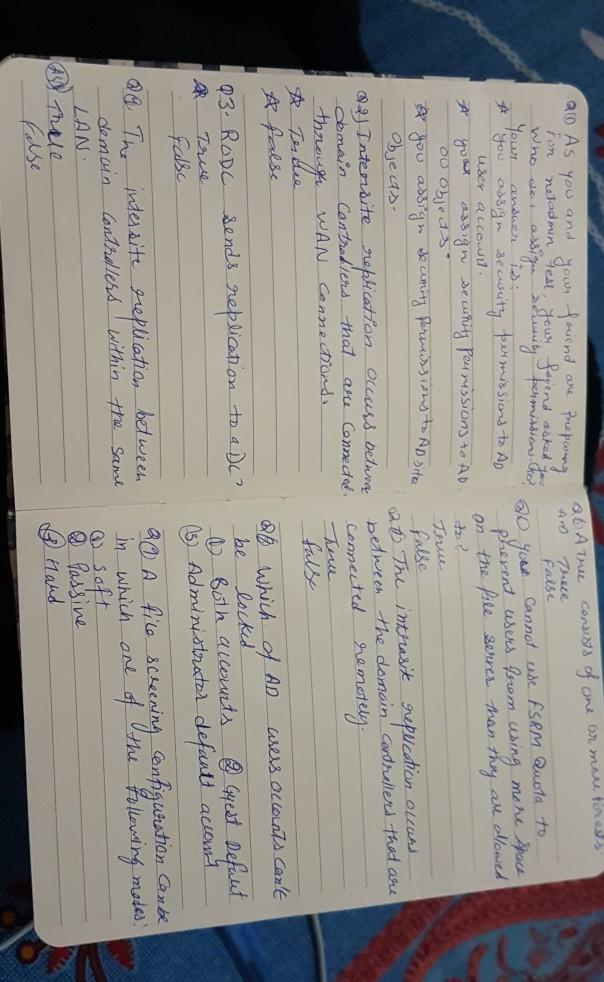 Q1) As you and your friend are preparing
for netadmin test, your friend asked you
who do i assign security permissions to?
Your answer is:
* you assign security permissions to AD
user account.
* you assign security permissions to AD
OU objects.
* you assign security permissions to AD site
objects.
Q2) Intersite replication occurs between
domain controllers that are connected
through WAN connections.
* True
* false
Q3. RODC sends replication to a DC?
* True
false
Q4) The intersite replication between
domain controllers within the same
LAN.
True
false
Q6: A tree consists of one or more forests
True
false
Q7) you cannot use FSRM Quota to
prevent users from using more space
on the file server than they are allowed
to?
True
false
The intrasite replication occurs
between the domain controllers that are
connected remotely.
True
false
Which of AD users accounts can't
be locked
(1) Both accounts (2) Guest Default
(3) Administrator default account
Q9) A file screening configuration can be
in which one of the following modes:
(1) Soft
(2) Passive
(3) Hard